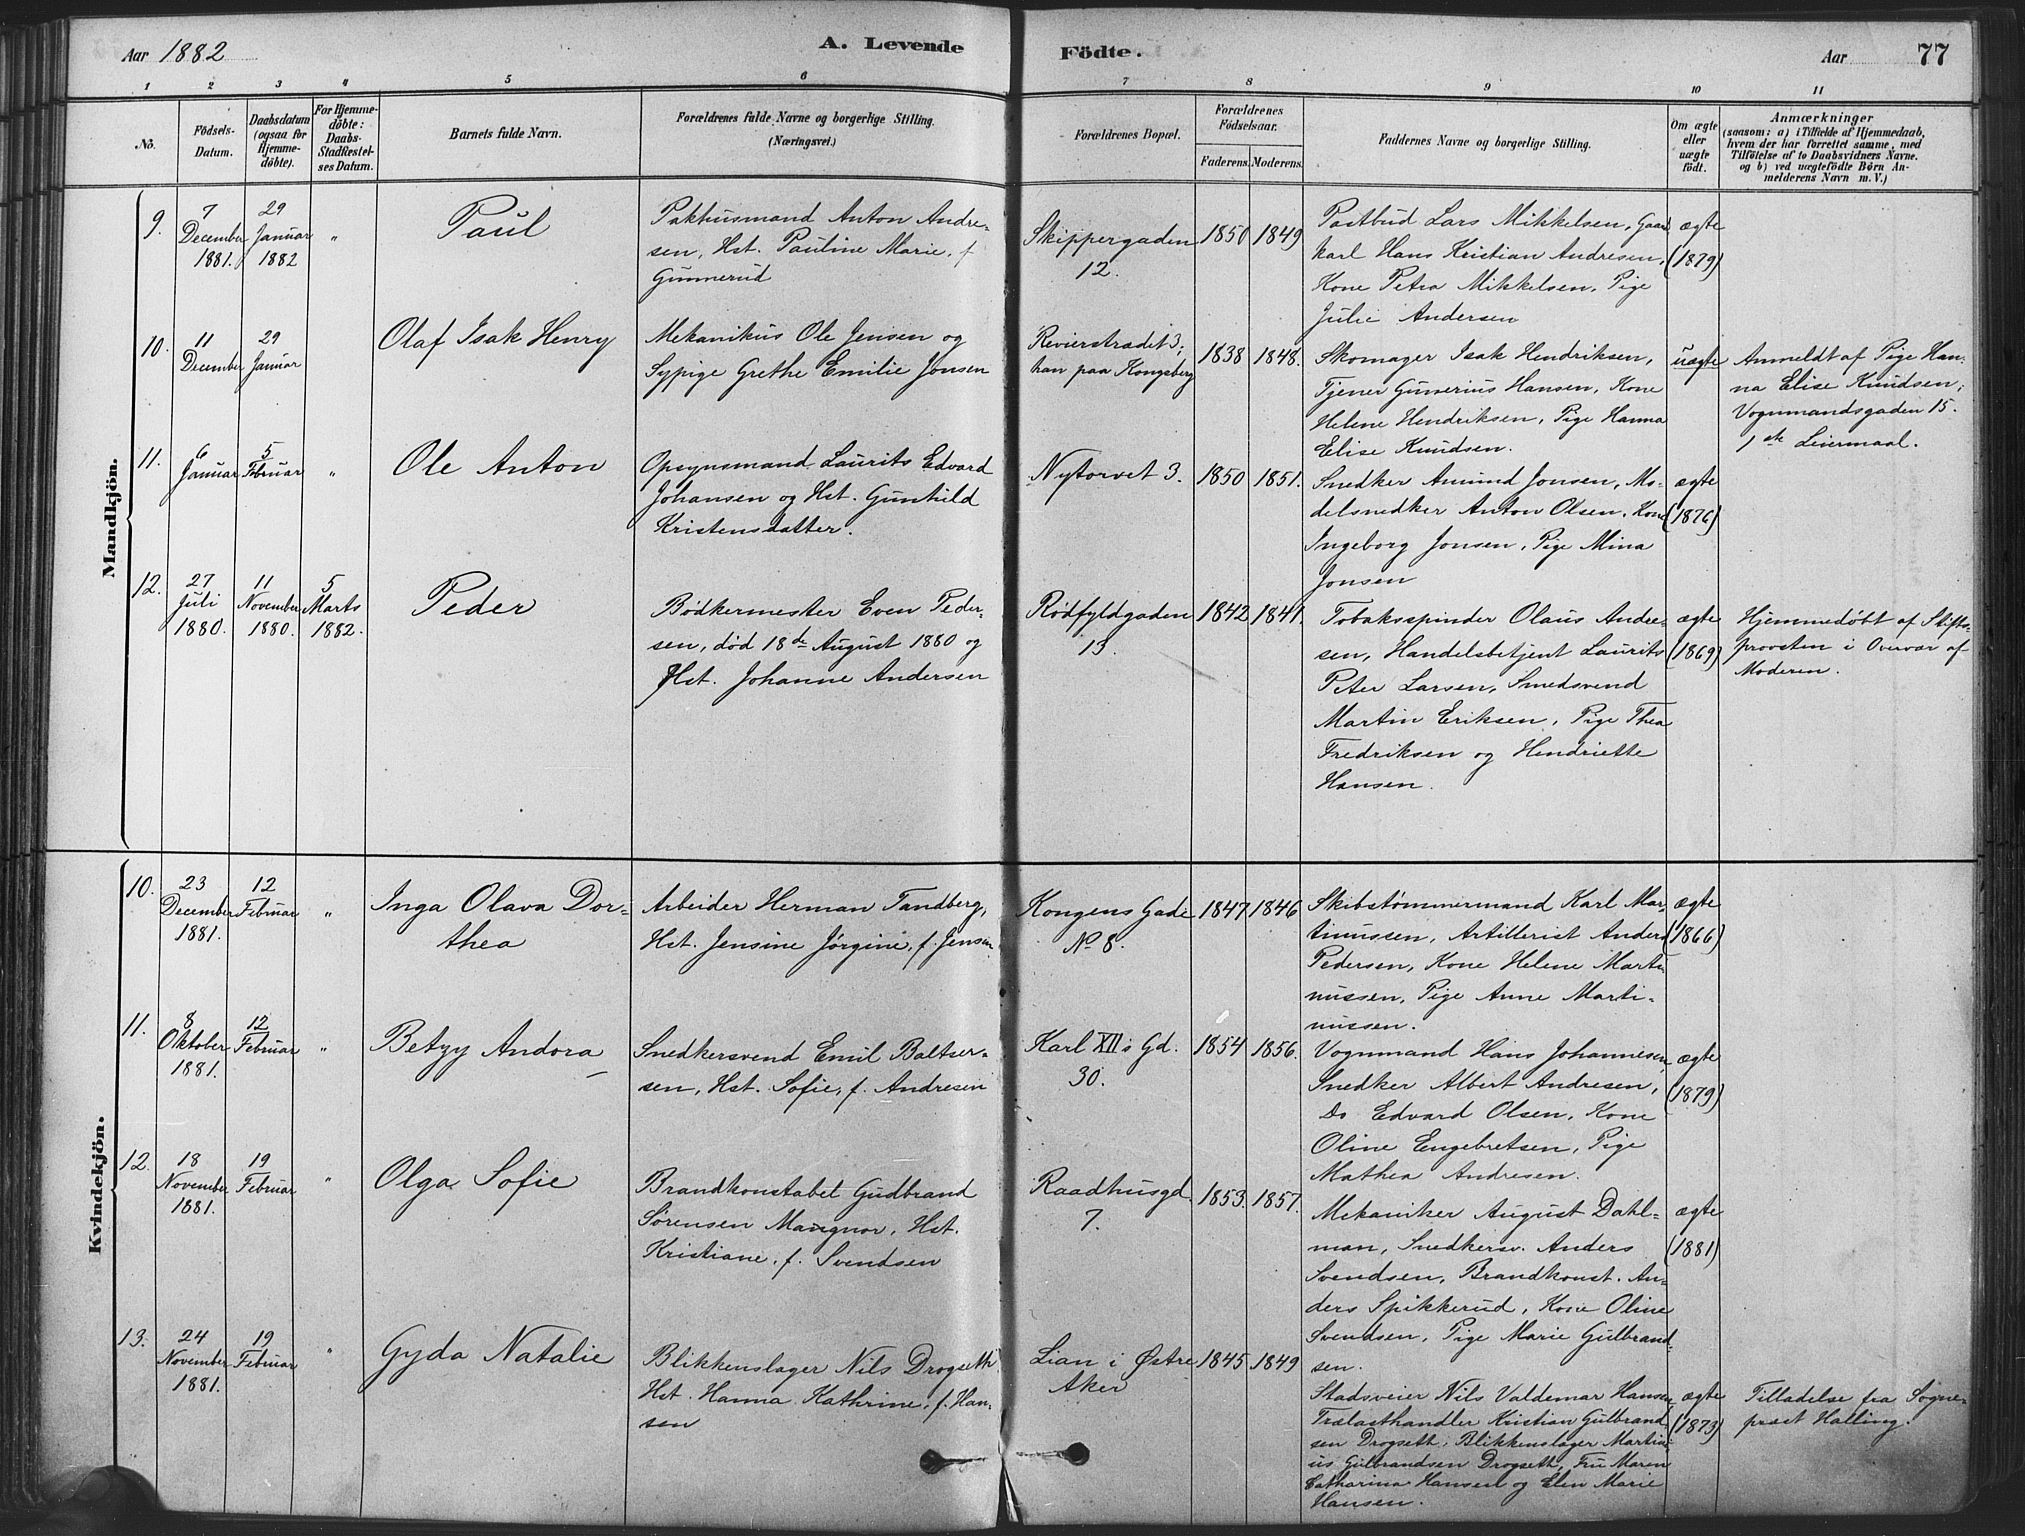 Aar 1882
A. Levende Födte.
Aar 77
1 2 3 4 5 6 7 8 9 10 11
No.
Födsels-Datum.
Daabsdatum (ogsaa for Hjemme-döbte).
For Hjemme-döbte: Daabs-Stadfæstel-ses Datum.
Barnets fulde Navn.
Forældrenes fulde Navne og borgerlige Stilling.
(Næringsvei.)
Forældrenes Bopæl.
Forældrenes Födselsaar.
Faderens. Moderens.
Faddernes Navne og borgerlige Stilling.
Om ægte eller uægte födt.
Anmærkninger
(saasom: a) i Tilfælde af Hjemmedaab,
hvem der har forrettet samme, med
Tilföielse af to Daabsvidners Navne.
og b) ved uægtefödte Börn An-
melderens Navn m. V.)
Mandkjön.
9. 7 December 1881. 29 Januar 1882 "
Paul
Pakhusmand Anton Andre-
sen, Hst. Pauline Marie, f
Gunnerud
Skippergaden
12.
1850 1849
Postbud Lars Mikkelsen, Gaar
karl Hans Kristian Andresen,
Kone Petra Mikkelsen, Pige
Julie Andersen
ægte
(1879)
10. 11 December 29 Januar
Olaf Isak Henry
Mekanikus Ole Jensen og
Sypige Grethe Emilie Jonsen
Revierstrædet 3,
han paa Kongsberg
1838 1848.
Skomager Isak Hendriksen,
Tjener Gunerius Hansen, Kone
Helene Hendriksen, Pige Hanna
Elise Knudsen.
uægte
Anmeldt af Pige Han-
na Elise Knudsen,
Vognmandsgaden 15.
1ste Leiermaal.
11. 6 Januar 5 Februar "
Ole Anton
Opsynsmand Laurits Edvard
Johansen og Hst. Gunhild
Kristensdatter.
Nytorvet 3.
1850 1851.
Snedker Amund Jonsen, Mo-
delsnedker Anton Olsen, Kone
Ingeborg Jonsen, Pige Mina
Jonsen
ægte
(1876)
12. 27 Juli 1880. 11 November 1880. 5 Marts 1882.
Peder
Bødkermester Even Peder-
sen, død 18de August 1880 og
Hst. Johanne Andersen
Rødfyldgaden
13.
1842 1841.
Tobaksspinder Olaus Andre-
sen, Handelsbetjent Laurits
Peter Larsen, Smedsvend
Martin Eriksen, Pige Thea
Fredriksen og Hendriette
Hansen.
ægte
(1869)
Hjemmedøbt af Stifts-
provsten i Overvær af
Moderen.
Kvindekjön.
10. 23 December 1881. 12 Februar "
Inga Olava Dor-
thea
Arbeider Herman Tandberg,
Hst. Jensine Jørgine, f. Jensen
Kongens Gade
No 8.
1847 1846
Skibstømmermand Karl Mar-
tinussen, Artillerist Anders
Pedersen, Kone Helene Marti-
nussen, Pige Anne Marti-
nussen.
ægte
(1866)
11. 8 Oktober 1881. 12 Februar "
Betzy Andora
Snedkersvend Emil Baltser-
sen, Hst. Sofie, f. Andresen
Karl XII's Gd.
30.
1854 1856.
Vognmand Hans Johannesen,
Snedker Albert Andresen,
Do Edvard Olsen, Kone
Oline Engebretsen, Pige
Mathea Andresen.
ægte
(1879)
12. 18 November 1881. 19 Februar "
Olga Sofie
Brandkonstabel Gudbrand
Sørensen Mangnor, Hst.
Kristiane, f. Svendsen
Raadhusgd.
7.
1853. 1857.
Mekaniker August Dahl-
man, Snedkersv. Anders
Svendsen, Brandkonst. An-
ders Spikkerud, Kone Oline
Svendsen, Pige Marie Gulbrand-
sen.
ægte
(1881)
13. 24 November 1881. 19 Februar "
Gyda Natalie
Blikkenslager Nils Drogseth
Hst. Hanna Kathrine, f. Han-
sen
Lian i Østre
Aker
1845 1849
Stadsveier Nils Valdemar Hansen
Trælasthandler Kristian Gulbrand
sen Drogseth, Blikkenslager Martin
us Gulbrandsen Drogseth, Fru Maren
Catharina Hansen og Elen Marie
Hansen.
ægte
(1873)
Tilladelse fra Sogne-
præst Halling.